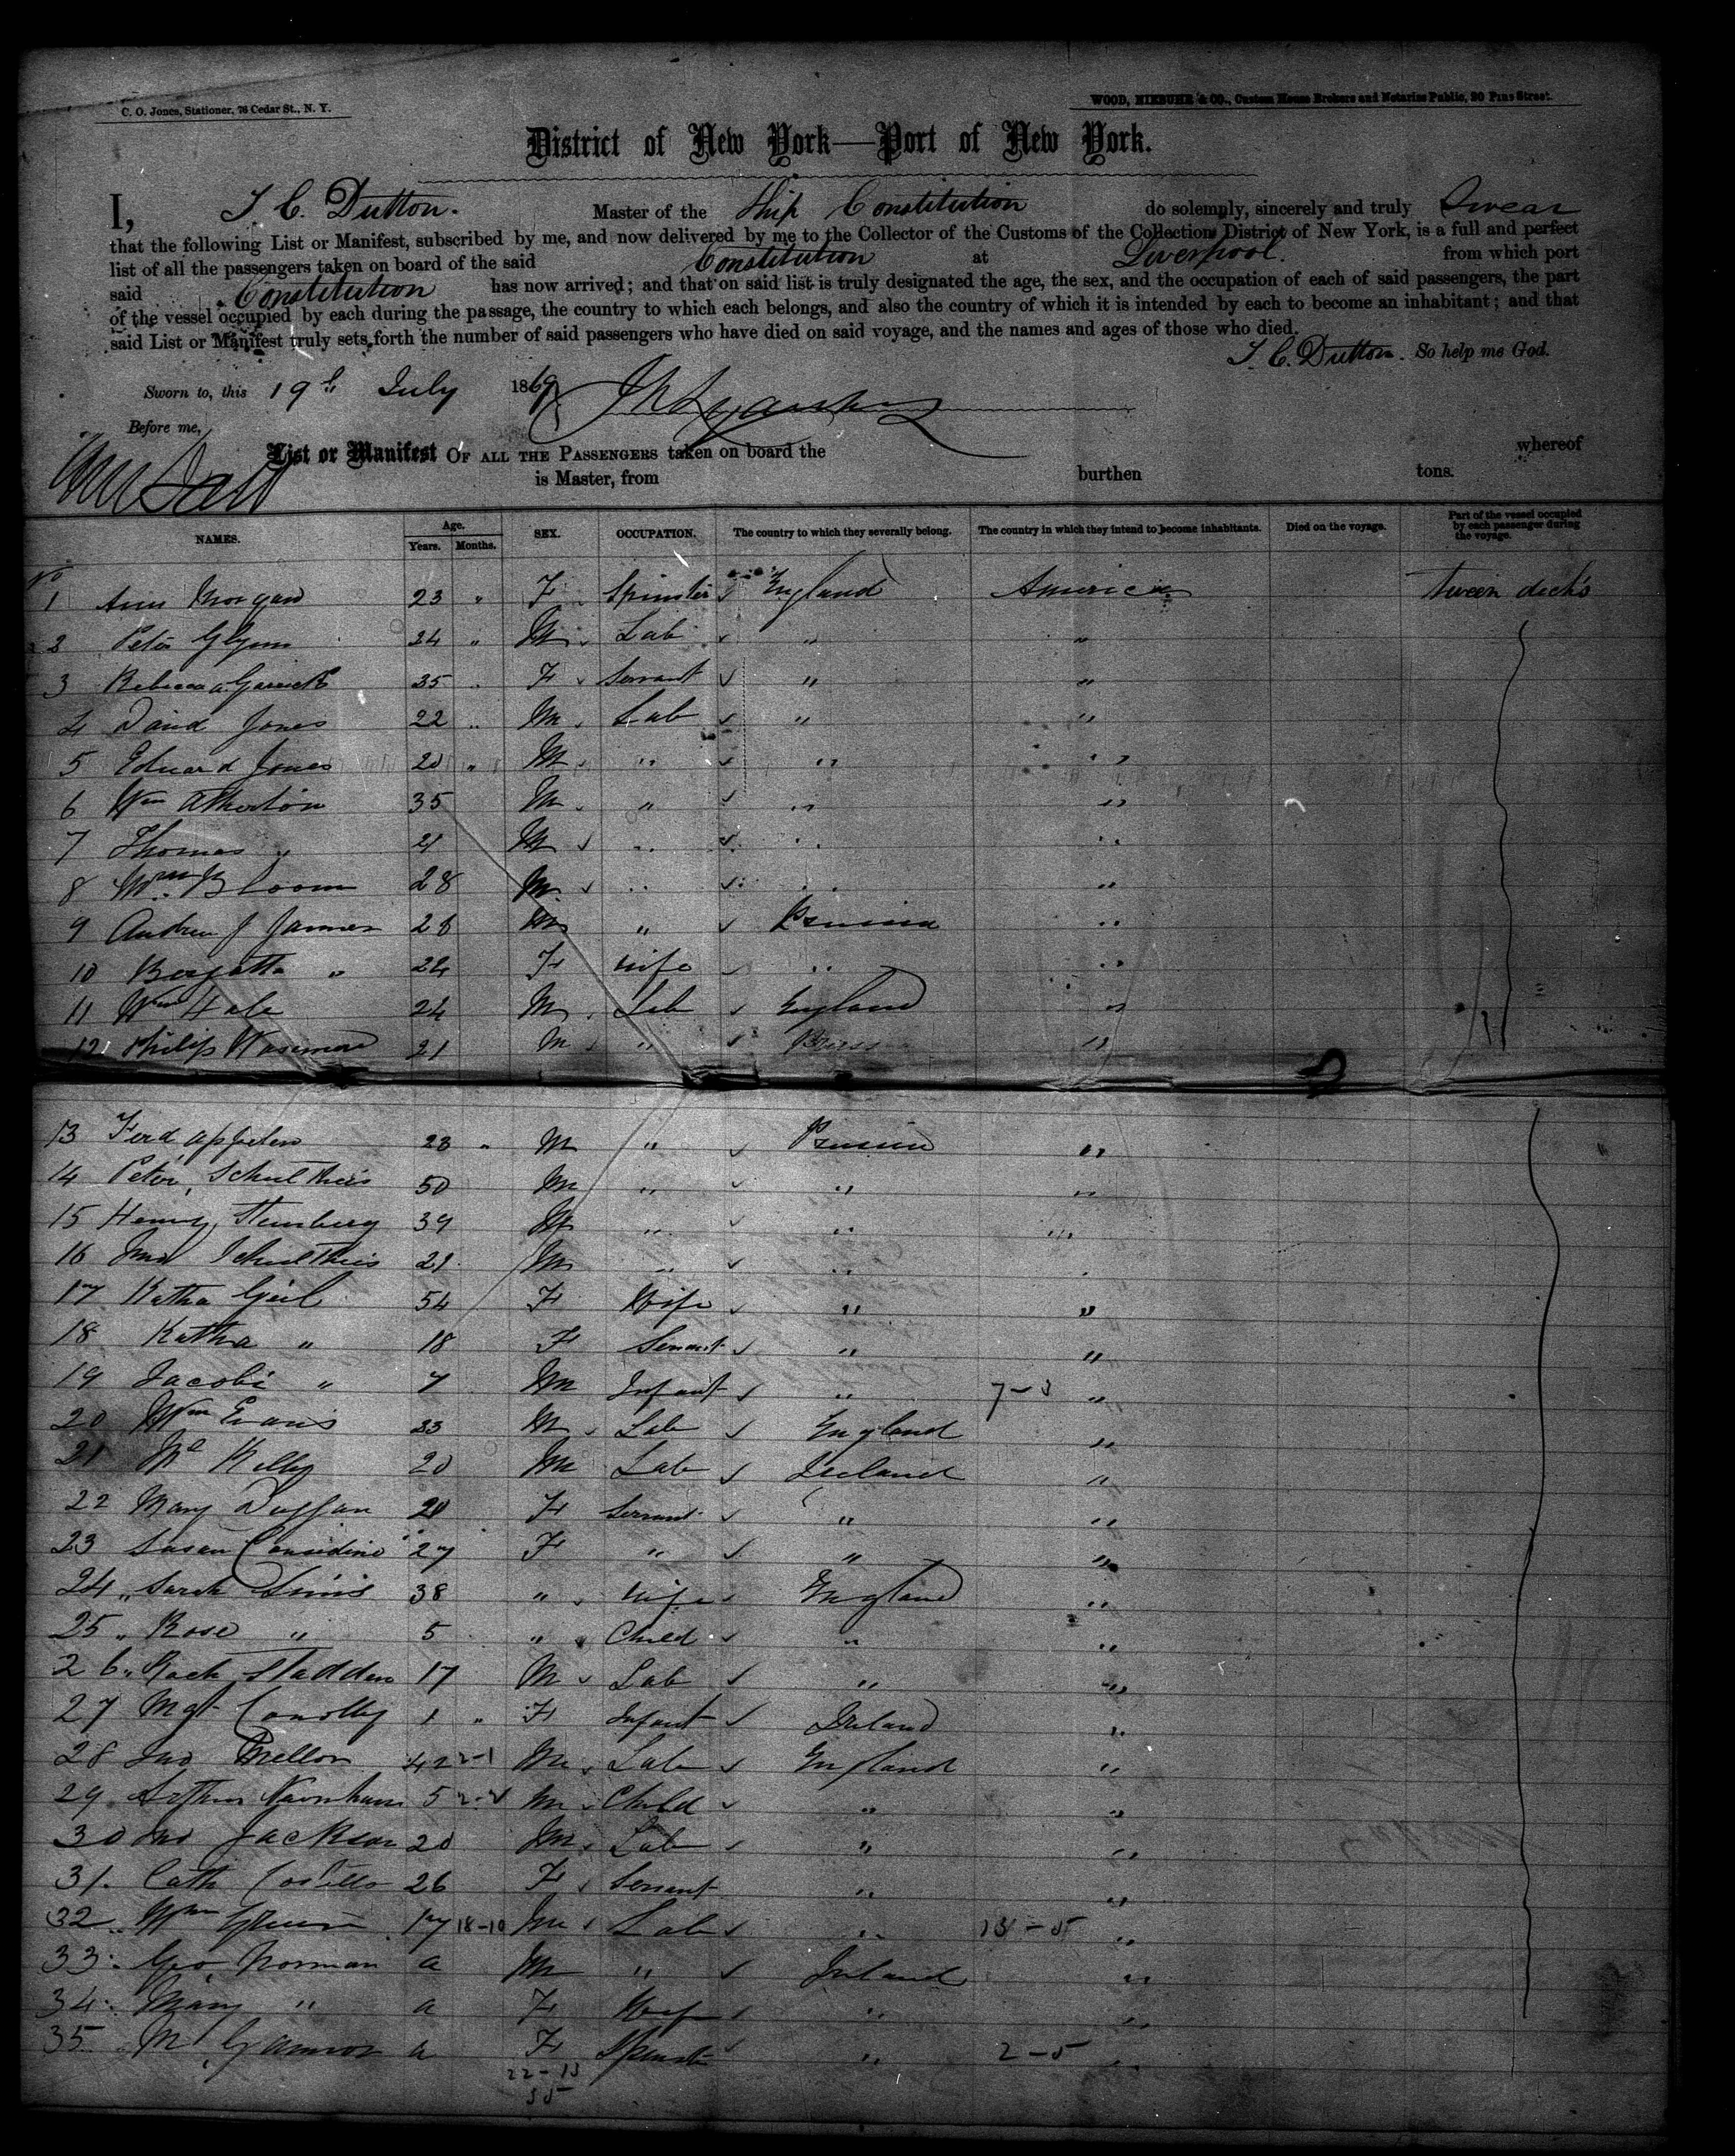 C. O. Jones, Stationer, 76 Cedar St., N. Y.
WOOD, NIEBUHR & CO., Custom House Brokers and Notaries Public, 20 Pine Street.
District of New York—Port of New York.
I, T. C. Dutton. Master of the Ship Constitution do solemnly, sincerely and truly Swear
that the following List or Manifest, subscribed by me, and now delivered by me to the Collector of the Customs of the Collection District of New York, is a full and perfect
list of all the passengers taken on board of the said Constitution at Liverpool. from which port
said Constitution has now arrived; and that on said list is truly designated the age, the sex, and the occupation of each of said passengers, the part
of the vessel occupied by each during the passage, the country to which each belongs, and also the country of which it is intended by each to become an inhabitant; and that
said List or Manifest truly sets forth the number of said passengers who have died on said voyage, and the names and ages of those who died.
T. C. Dutton. So help me God.
Sworn to, this 19th July 1869
Before me,
List or Manifest OF ALL THE PASSENGERS taken on board the whereof
is Master, from burthen tons.
NAMES. Age. Years. Months. SEX. OCCUPATION. The country to which they severally belong. The country in which they intend to become inhabitants. Died on the voyage. Part of the vessel occupied by each passenger during the voyage.
No
1 Ann Morgan 23 " F Spinster England America tween decks
2 Peter Glynn 24 " M Lab " "
3 Rebecca Garrick 35 " F Servant " "
4 David Jones 22 " M Lab " "
5 Edward Jones 20 " M " " "
6 Wm Atherton 35 M " " "
7 Thomas " 21 M " " "
8 Wm Bloom 28 M " " "
9 Andrew J 28 M " Prussia "
10 " 24 F Wife " "
11 Wm Hale 24 M Lab England "
12 Philip 21 M " "
13 Ferd 23 " M " Prussia "
14 Peter Schultheis 50 M " " "
15 Henry Steinberg 39 M " " "
16 Jno Schultheis 21 M " "
17 Katha Geil 54 F Wife " "
18 Katha " 18 F Servant " "
19 Jacobi " 7 M Infant " 7-3 "
20 Wm Evans 23 M Lab England "
21 Kelly 20 M Lab Ireland "
22 Mary Duffan 20 F Servant " "
23 Susan Considine 27 F " " "
24 " Sarah Simis 38 " Wife England "
25 " Rose " 5 " Child " "
26 " Stadden 17 M Lab " "
27 Mgt Conolly 1 " F Infant Ireland "
28 Jno Mellor 42 2-1 M Lab England "
29 Arthur 5 M Child " "
30 Jno Jackson 20 M Lab " "
31. Cath Costello 26 F Servant " "
32 Wm 17 18-10 M Lab " 13-5 "
33 Geo Norman a M " Ireland "
34 Mary " a F Wife " "
35 M a F Spinster " 2-5 "
22-13